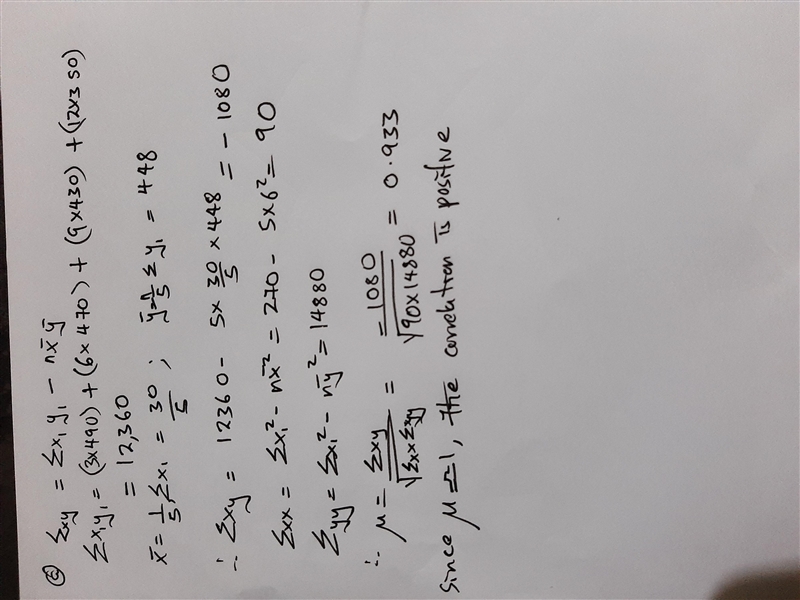 (c) Σxy = Σx₁y₁ − nx̄ȳ
Σx₁y₁ = (3×490) + (6×470) + (9×430) + (12×350)
= 12,360
x̄ = 1/5 Σx₁ = 30/5 ; ȳ = 1/5 Σy₁ = 448
∴ Σxy = 12360 − 5 × 30/5 × 448 = −1080
Σxx = Σx₁² − nx̄² = 270 − 5×6² = 90
Σyy = Σx₁² − nȳ² = 14880
∴ μ = Σxy/√ΣxxΣxy = −1080/√90×14880 = 0.933
Since μ ≏ 1, the correlation is positive